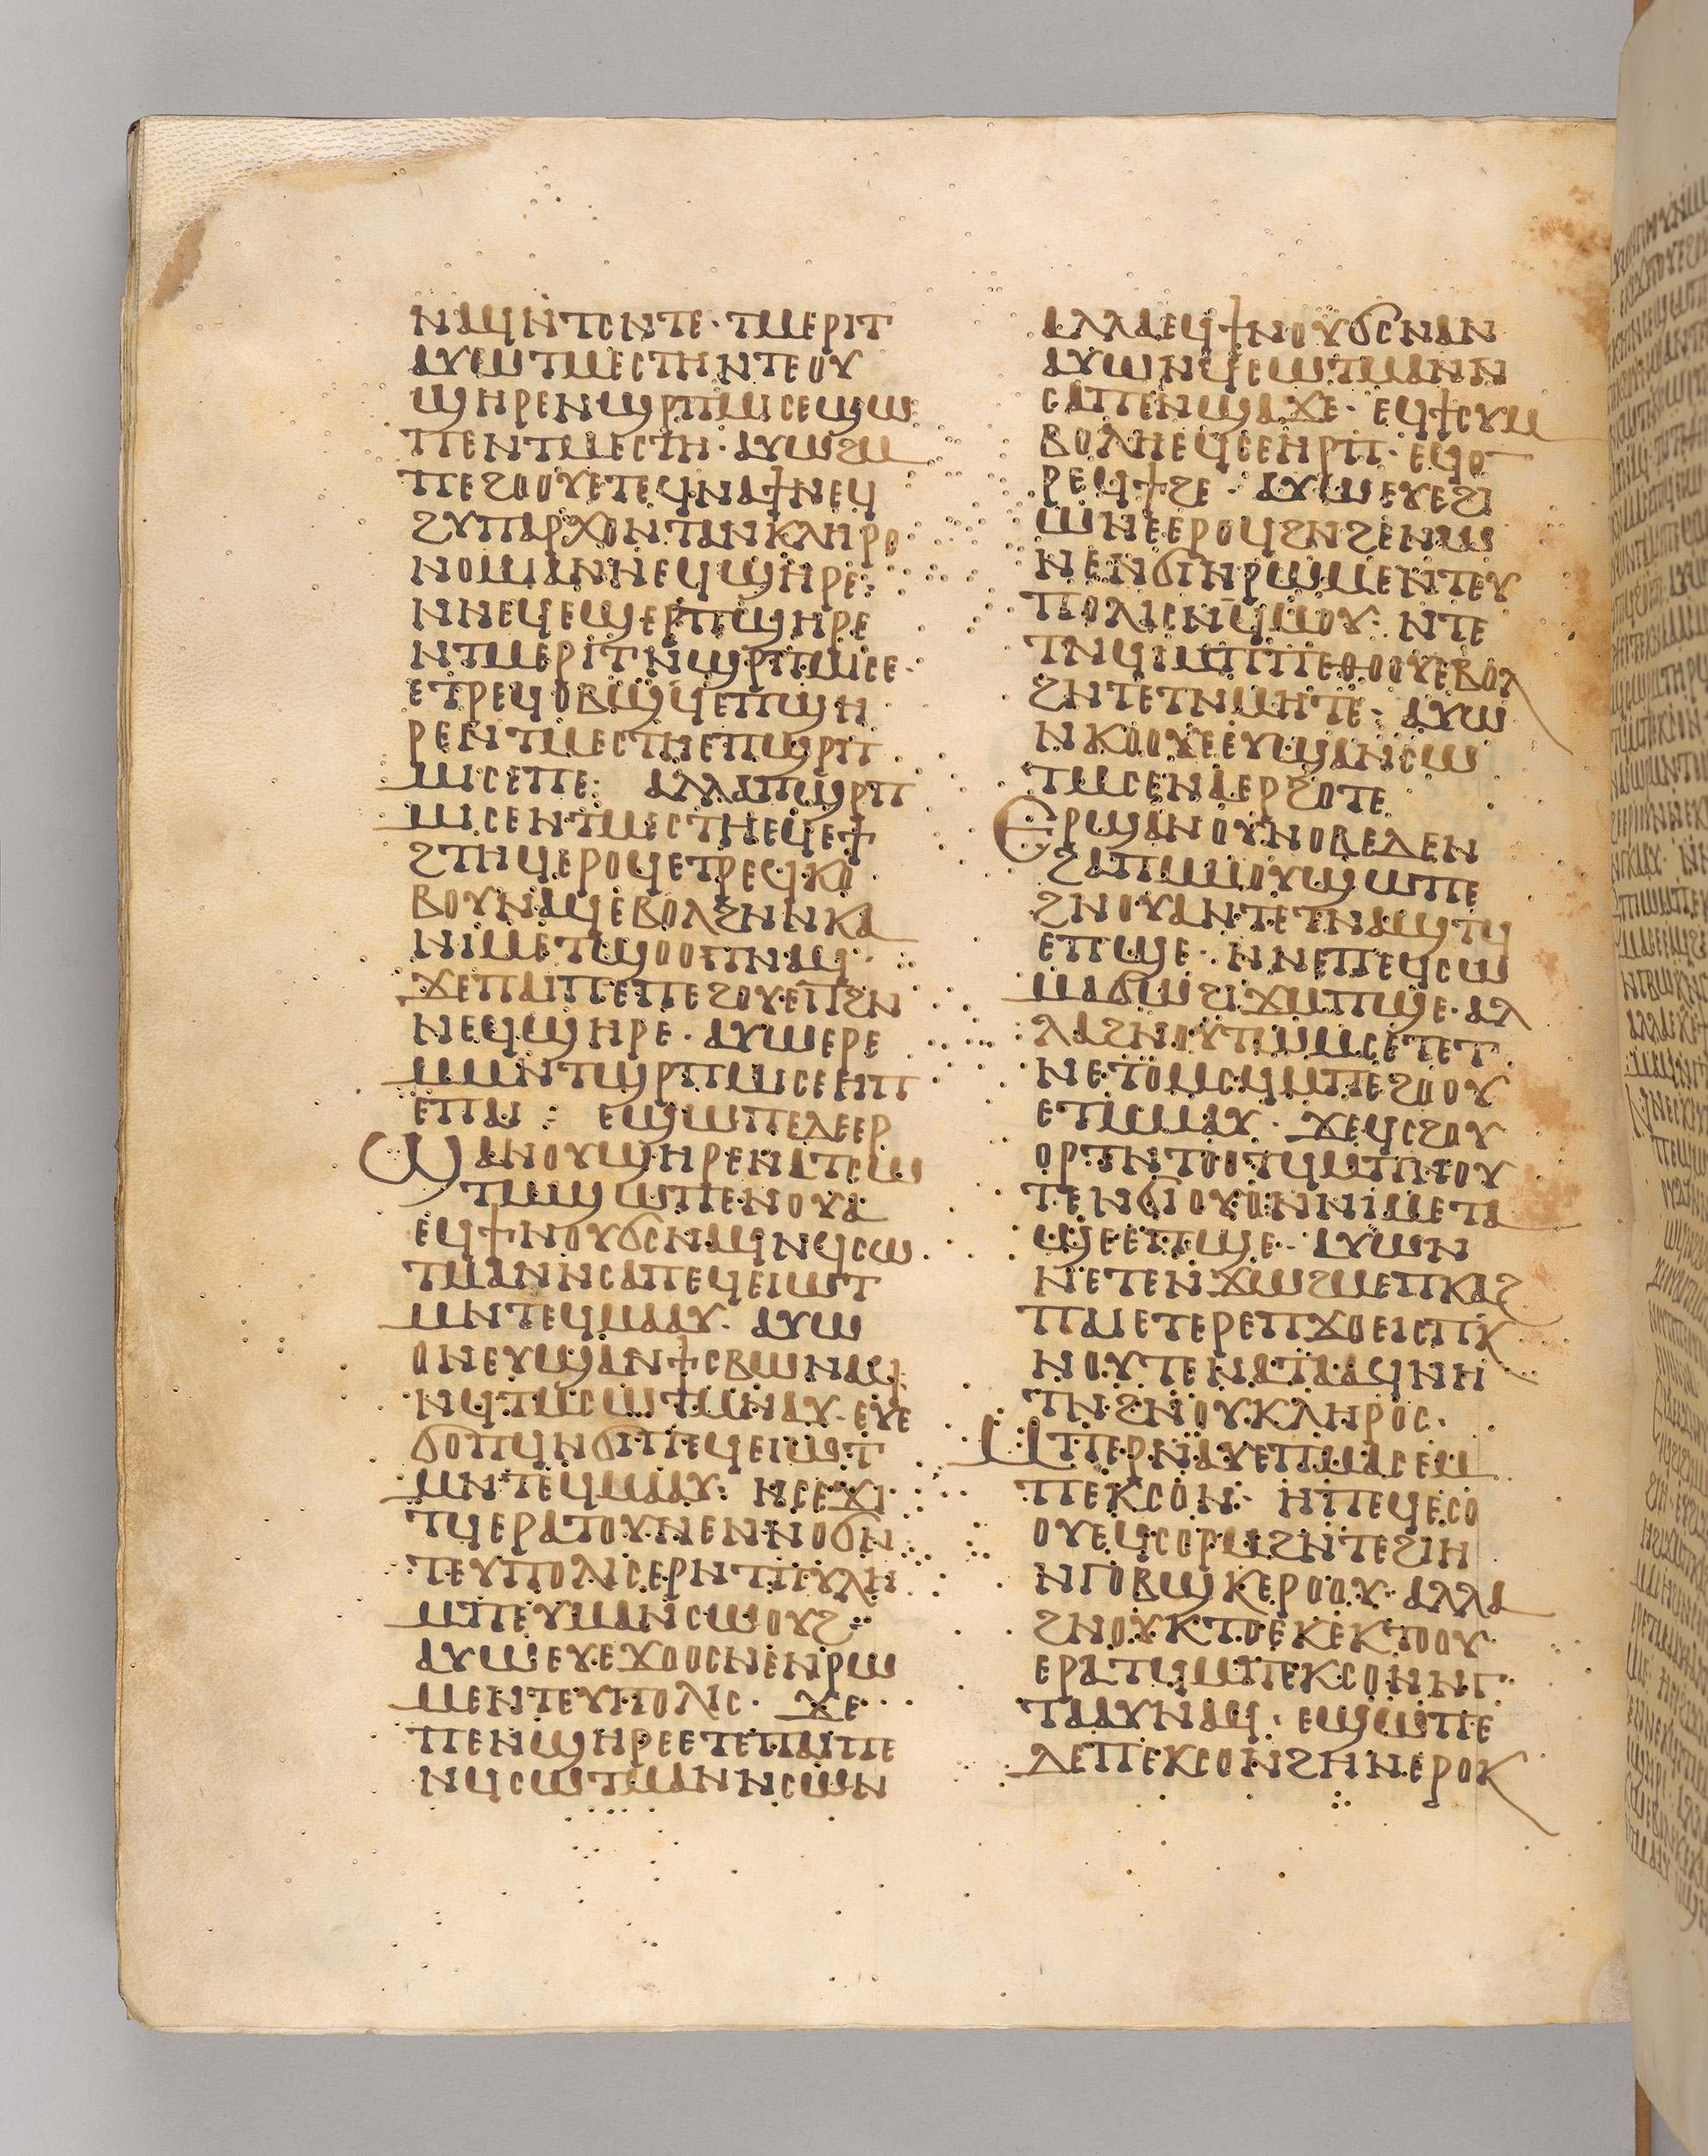 ⲛⲁϥⲛ̄ⲧⲥⲛⲧⲉ· ⲧⲙⲉⲣⲓⲧ
ⲁⲩⲱⲧⲙⲉⲥⲧⲏⲛⲧⲉⲟⲩ
ϣⲏⲣⲉⲛϣⲣⲡⲙⲓⲥⲉϣⲱ
ⲡⲉⲛⲧⲙⲉⲥⲧⲏ· ⲁⲩⲱϩⲙ
ⲡⲉϩⲟⲟⲩⲉⲧⲉϥⲛⲁϯⲛⲉϥ
ϩⲩⲡⲁⲣⲭⲟⲛⲧⲁⲛⲕⲗⲏⲣⲟ
ⲛⲟⲙⲓⲁⲛⲛⲉϥϣⲏⲣⲉ:
ⲛⲛⲉϥⲉϣⲉⲣⲡϣⲏⲣⲉ
ⲛⲧⲙⲉⲣⲓⲧⲛϣⲣⲡⲙⲓⲥⲉ·
ⲉⲧⲣⲉϥⲟⲃϣϥⲉⲡϣⲏ
ⲣⲉⲛⲧⲙⲉⲥⲧⲏⲉⲡϣⲣⲡ
ⲙⲓⲥⲉⲡⲉ: ⲁⲗⲗⲁⲡϣⲣⲡ
ⲙⲓⲥⲉⲛⲧⲙⲉⲥⲧⲏⲉϥⲉϯ
ϩⲧⲏϥⲉⲣⲟϥⲉⲧⲣⲉϥⲕⲱ
ⲃⲟⲩⲛⲁϥⲉⲃⲟⲗϩⲛⲛⲕⲁ
ⲛⲓⲙⲉⲧϣⲟⲟⲡⲛⲁϥ·
ϫⲉⲡⲁⲓⲡⲉⲡⲉϩⲟⲩⲉⲓⲧϩⲛ
ⲛⲉϥϣⲏⲣⲉ· ⲁⲩⲱⲉⲣⲉ
ⲙⲙⲛⲧϣⲣⲡⲙⲓⲥⲉⲏⲡ
ⲉⲡⲁⲓ: ⲉϣⲱⲡⲉⲇⲉⲉⲣ
ϣⲁⲛⲟⲩϣⲏⲣⲉⲛⲁⲧⲥⲱ
ⲧⲙϣⲱⲡⲉⲛⲟⲩⲁ
ⲉϥϯⲛⲟⲩϭⲥⲛⲁϥⲛϥⲥⲱ
ⲧⲙⲁⲛⲛⲥⲁⲡⲉϥⲉⲓⲱⲧ
ⲙⲛⲧⲉϥⲙⲁⲁⲩ· ⲁⲩⲱ
ⲟⲛⲉⲩϣⲁⲛϯⲥⲃⲱⲛⲁϥ
ⲛϥⲧⲙⲥⲱⲧⲙⲛⲁⲩ· ⲉⲩⲉ
ϭⲟⲡϥⲛϭⲓⲡⲉϥⲉⲓⲱⲧ
ⲙⲛⲧⲉϥⲙⲁⲁⲩ: ⲛⲥⲉϫⲓ
ⲧϥⲉⲣⲁⲧⲟⲩⲛⲉⲛⲛⲟϭⲛ
ⲧⲉⲩⲡⲟⲗⲓⲥⲉⲣⲛⲧⲡⲩⲗⲏ
ⲙⲡⲉⲩⲙⲁⲛⲥⲱⲟⲩϩ:
ⲁⲩⲱⲉⲩⲉϫⲟⲟⲥⲛⲉⲛⲣⲱ
ⲙⲉⲛⲧⲉⲩⲡⲟⲗⲓⲥ· ϫⲉ
ⲡⲉⲛϣⲏⲣⲉⲉⲧⲉⲡⲁⲓⲡⲉ
ⲛϥⲥⲱⲧⲙⲁⲛⲛⲥⲱⲛ
ⲁⲗⲗⲁⲉϥϯⲛⲟⲩϭⲥⲛⲁⲛ
ⲁⲩⲱⲛϥⲥⲱⲧⲙⲁⲛⲛ
ⲥⲁⲡⲉⲛϣⲁϫⲉ· ⲉϥϯⲥⲩⲙ
ⲃⲟⲗⲏⲉϥⲥⲉⲏⲣⲡ· ⲉϥⲟ
ⲣⲉϥϯϩⲉ· ⲁⲩⲱⲉⲩⲉϩⲓ
ⲱⲛⲉⲉⲣⲟϥϩⲛϩⲉⲛⲱ
ⲛⲉⲛϭⲓⲛⲣⲱⲙⲉⲛⲧⲉϥ
ⲡⲟⲗⲓⲥⲛϥⲙⲟⲩ· ⲛⲧⲉ
ⲧⲛϥⲓⲙⲡⲡⲉⲑⲟⲟⲩⲉⲃⲟⲗ
ϩⲛⲧⲉⲧⲛⲙⲏⲧⲉ· ⲁⲩⲱ
ⲛⲕⲟⲟⲩⲉⲉⲩϣⲁⲛⲥⲱ
ⲧⲙⲥⲉⲛⲁⲉⲣϩⲟⲧⲉ
ⲉⲣϣⲁⲛⲟⲩⲛⲟⲃⲉⲇⲉⲛ
ϩⲁⲡⲙⲙⲟⲩϣⲱⲡⲉ
ϩⲛⲟⲩⲁⲛⲧⲉⲧⲛⲁϣⲧϥ
ⲉⲡϣⲉ· ⲛⲛⲉⲡⲉϥⲥⲱ
ⲙⲁϭⲱϩⲓϫⲙⲡϣⲉ· ⲁⲗ
ⲗⲁϩⲛⲟⲩⲧⲱⲙⲥⲉⲧⲉⲧ
ⲛⲉⲧⲟⲙⲥϥⲙⲡⲉϩⲟⲟⲩ
ⲉⲧⲙⲙⲁⲩ· ϫⲉϥⲥϩⲟⲩ
ⲟⲣⲧⲛⲧⲟⲟⲧϥⲙⲡⲛⲟⲩ
ⲧⲉⲛϭⲓⲟⲩⲟⲛⲛⲓⲙⲉⲧⲁ
ϣⲉⲉⲡϣⲉ· ⲁⲩⲱⲛ
ⲛⲉⲧⲉⲛϫⲱϩⲙⲉⲡⲕⲁϩ
ⲡⲁⲓⲉⲧⲉⲣⲉⲡϫⲟⲉⲓⲥⲡⲕ
ⲛⲟⲩⲧⲉⲛⲁⲧⲁⲁϥⲛⲏ
ⲧⲛϩⲛⲟⲩⲕⲗⲏⲣⲟⲥ·
ⲙⲡⲉⲣⲛⲁⲩⲉⲡⲙⲁⲥⲉⲙ
ⲡⲉⲕⲥⲟⲛ· ⲏⲡⲉϥⲉⲥⲟ
ⲟⲩⲉϥⲥⲟⲣⲙϩⲛⲧⲉϩⲓⲏ
ⲛⲅⲟⲃϣⲕⲉⲣⲟⲟⲩ· ⲁⲗⲗⲁ
ϩⲛⲟⲩⲕⲧⲟⲉⲕⲉⲕⲧⲟⲟⲩ
ⲉⲣⲁⲧϥⲙⲡⲉⲕⲥⲟⲛⲛⲅ
ⲧⲁⲁⲩⲛⲁϥ· ⲉϣⲱⲡⲉ
ⲇⲉⲡⲉⲕⲥⲟⲛϩⲏⲛⲉⲣⲟⲕ